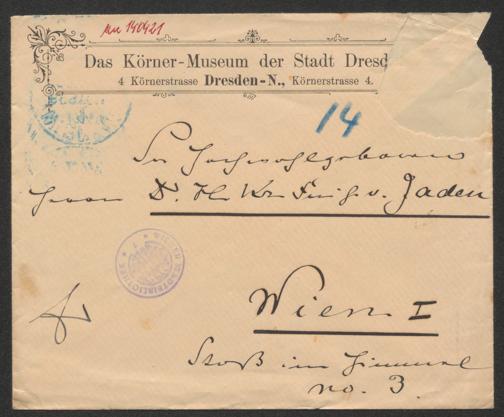 Das Körner-Museum der Stadt Dresd
4 Körnerstrasse Dresden-N., Körnerstrasse 4.
14
Sr Hochwohlgeboren
Herrn Dr. v. Jaden
Wien I
Stoß im Himmel
no. 3.